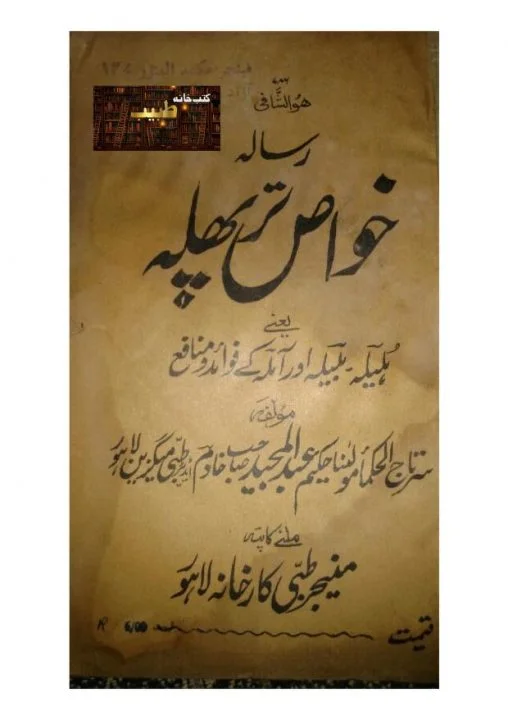 ھوالشافی
کتب خانہ
طبیب
رسالہ
خواص تر پھلہ
یعنے
ہلیلہ ۔ بلیلہ اور آملہ کے فوائد و منافع
مؤلفہ
سرتاج الحکماء مولٰنا حکیم عبدالمجید صاحب خادم ایڈیٹر طبّی میگزین لاہور
ملنے کا پتہ
منیجر طبّی کارخانہ لاہور
قیمت R 6/00